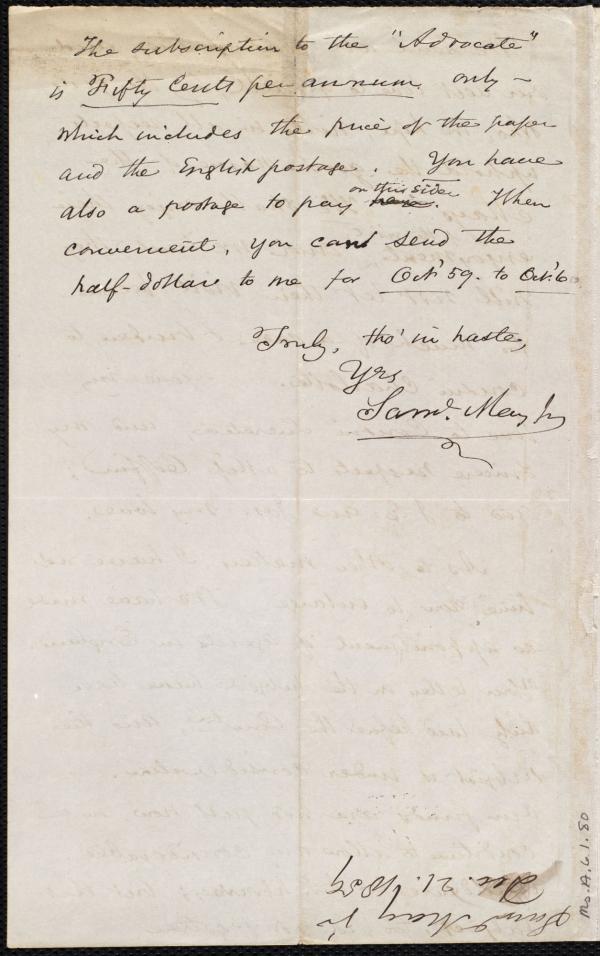 The subscription to the "Advocate"
is Fifty Cents per annum only –
which includes the price of the paper
and the English postage. You have
also a postage to pay here on this side. When
convenient, you can send the
half-dollar to me for Oct. '59. to Oct. '60
Truly, tho' in haste,
Yrs,
Saml. May Jr
Saml May Jr
Dec. 21. 1859
Ms. A. 6. 1. 80